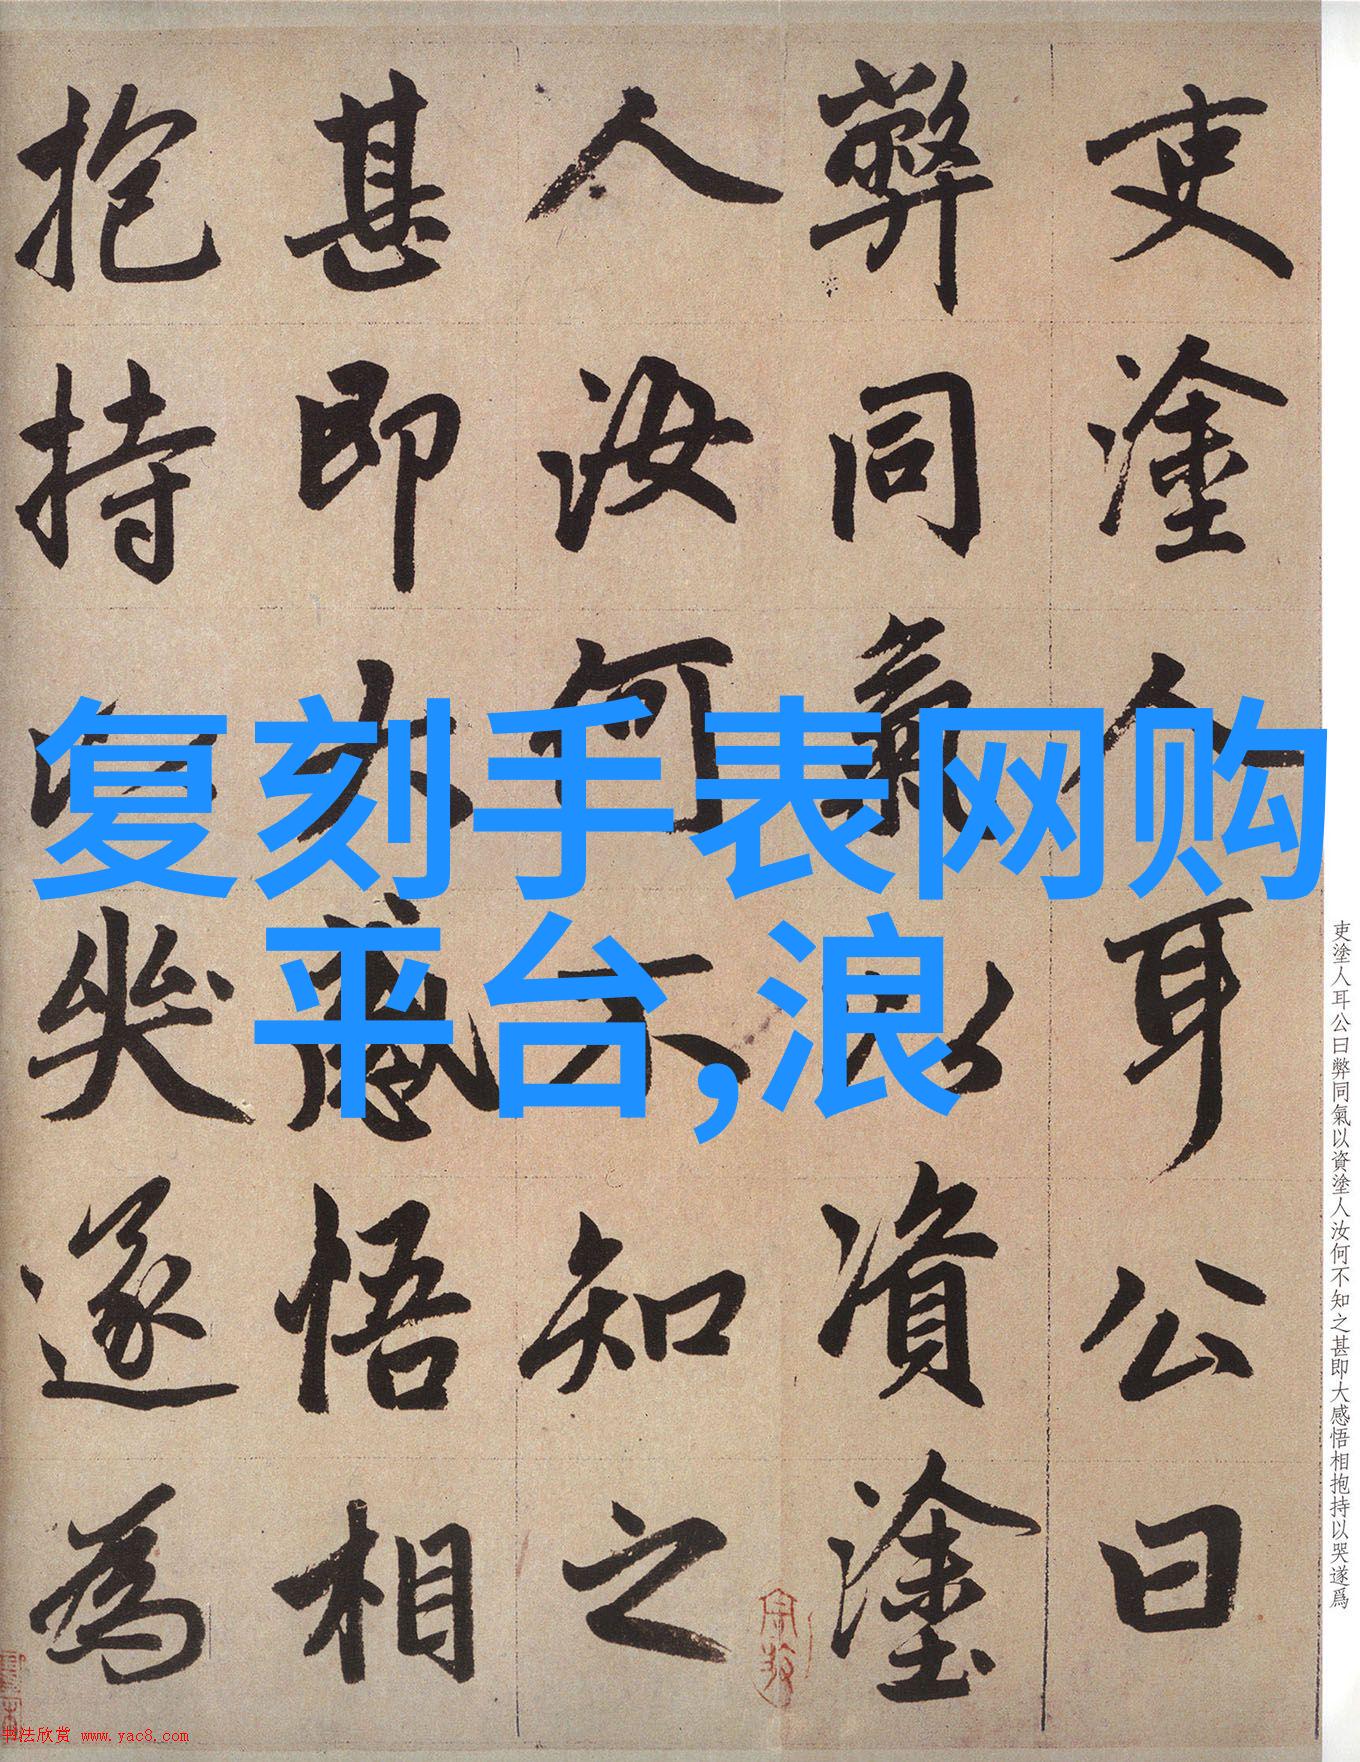 吏塗人耳公曰
弊同氣以資塗
人汝何不知之
甚即大感悟相
抱持以哭遂為
复刻手表网购
平台,浪
吏塗人耳公曰弊同氣以資塗人汝何不知之甚即大感悟相抱持以哭遂爲
书法欣赏 www.yac8.com